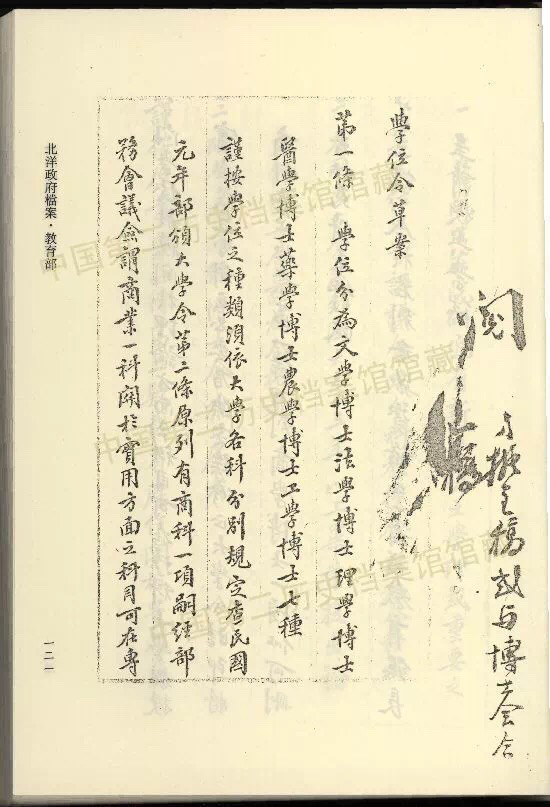 學位令草案
第一條 學位分為文學博士法學博士理學博士
醫學博士藥學博士農學博士工學博士七種
謹按學位之種類須依大學各科分別規定查民國
元年部頒大學令第二條原列有商科一項嗣經部
務會議僉謂商業一科關於實用方面之科目可在專
北洋政府檔案·教育部
一二一
中国第二历史档案馆馆藏
中国第二历史档案馆馆藏
中国第二历史档案馆馆藏